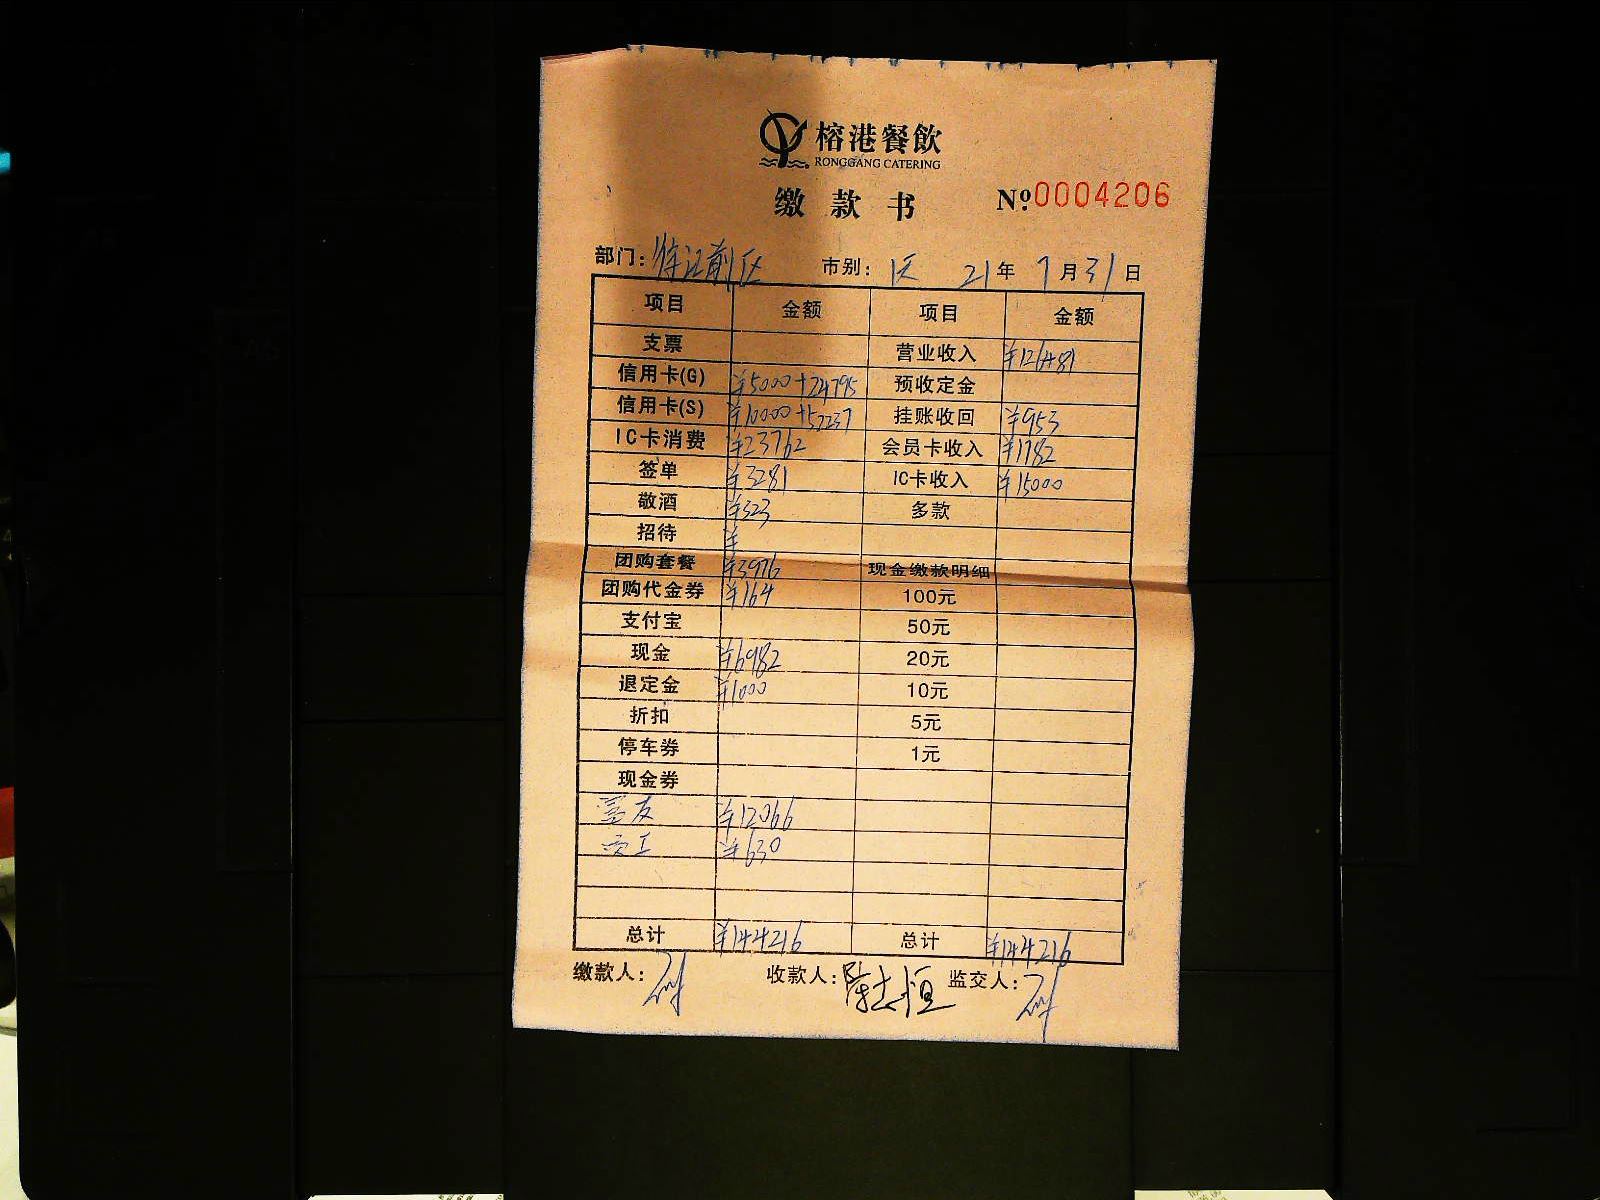 榕港餐飲
RONGGANG CATERING
缴款书 №0004206
部门: 前区 市别: 21年7月31日
项目 金额 项目 金额
支票 营业收入 ¥126481
信用卡(G) ¥5000+24795 预收定金
信用卡(S) ¥10000+52237 挂账收回 ¥953
IC卡消费 ¥23762 会员卡收入 ¥1782
签单 ¥3281 IC卡收入 ¥15000
敬酒 ¥323 多款
招待 ¥
团购套餐 ¥3976 现金缴款明细
团购代金券 ¥164 100元
支付宝 50元
现金 ¥6982 20元
退定金 ¥1000 10元
折扣 5元
停车券 1元
现金券
¥12066
¥630
总计 ¥144216 总计 ¥144216
缴款人: 收款人:陈志恒 监交人: